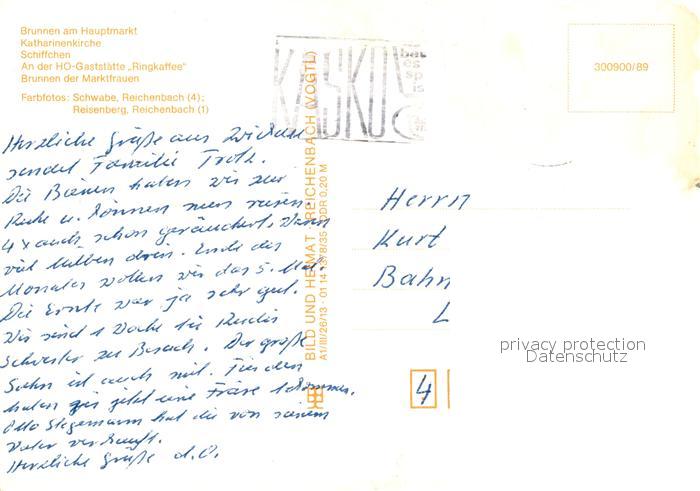 Brunnen am Hauptmarkt
Katharinenkirche
Schiffchen
An der HO-Gaststätte „Ringkaffee“
Brunnen der Marktfrauen
Farbfotos: Schwabe, Reichenbach (4);
Reisenberg, Reichenbach (1)
KASKO
300900/89
Herzliche Grüße aus Zwickau
sendet Familie Trotz.
Die Bienen haben wir zur
Ruhe u. können nun reisen
4 x auch schon geräuchert, waren
viel Milben drin. Ende des
Monates wollen wir das 5. Mal.
Die Ernte war ja sehr gut.
Wir sind 1 Woche bei
Schwester zu Besuch. Der große
Sohn ist auch mit.
haben jetzt eine Fräse bekommen.
Otto Stegemann hat die von seinem
Vater verkauft.
Herzliche Grüße d. O.
BILD UND HEIMAT REICHENBACH (VOGTL)
A1/III/26/13 01 14
DDR 0,20 M
Herrn
Kurt
Bahn
L
4
privacy protection
Datenschutz